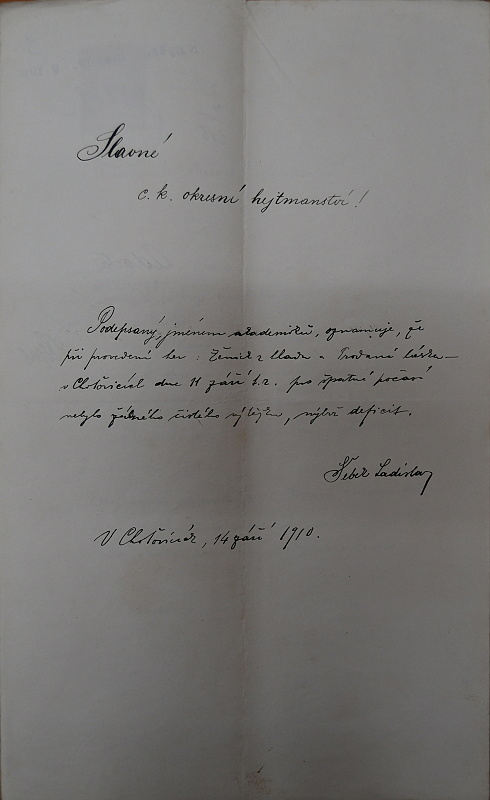 Slavné
c. k. okresní hejtmanství!
Podepsaný, jménem akademiků, oznamuje, že
při provedení her: Ženich z hladu a Prodaná láska –
v Chotovicích dne 11 září t. r. pro špatné počasí
nebylo žádného čistého výtěžku, nýbrž deficit.
Ladislav
V Chotovicích, 14 září 1910.